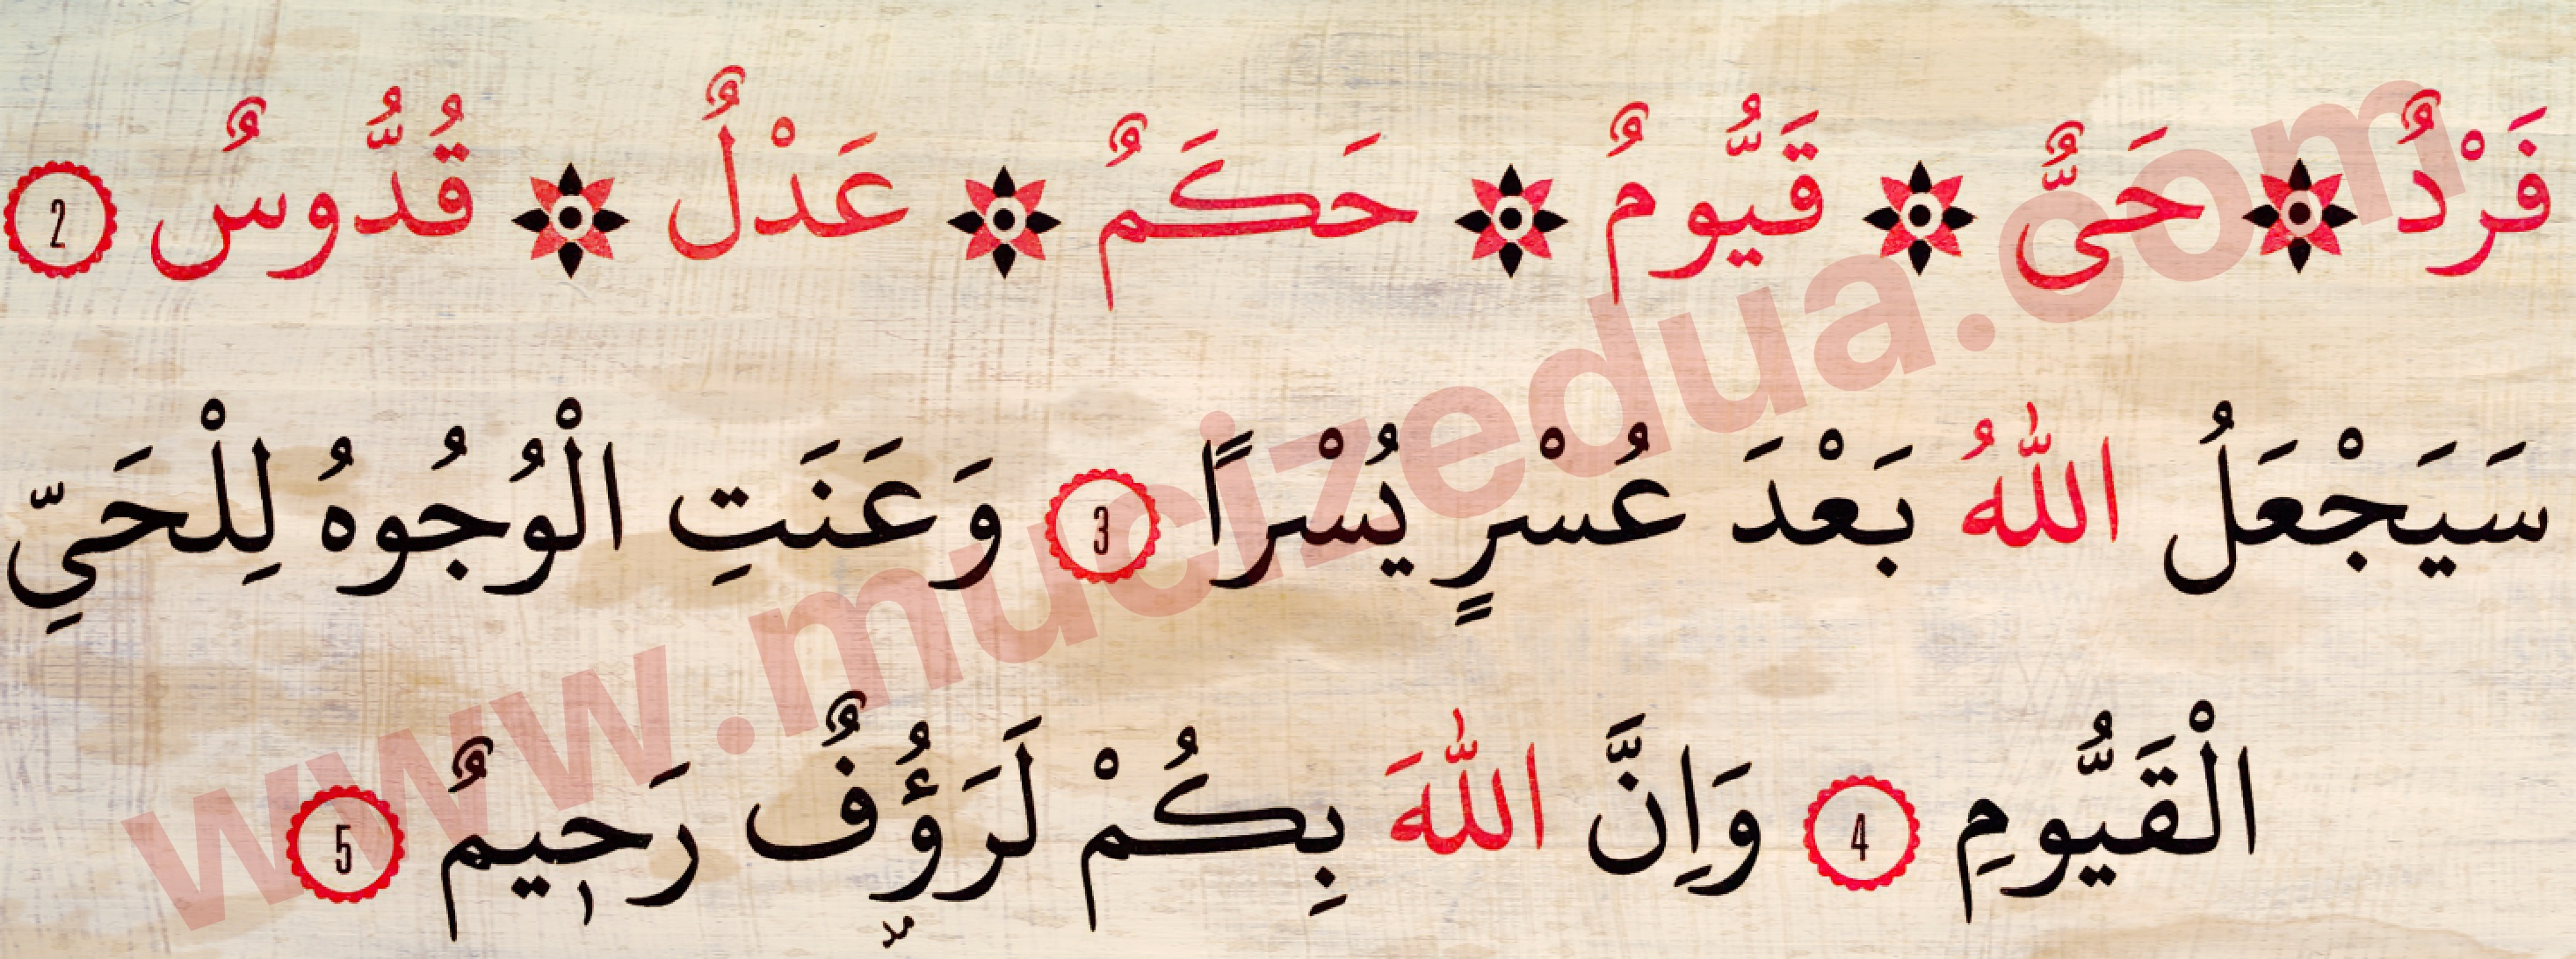 فَرْدٌ حَىٌّ قَيُّومٌ حَكَمٌ عَدْلٌ قُدُّوسٌ 2
سَيَجْعَلُ اللّٰهُ بَعْدَ عُسْرٍ يُسْرًا 3 وَعَنَتِ الْوُجُوهُ لِلْحَىِّ
الْقَيُّومِ 4 وَاِنَّ اللّٰهَ بِكُمْ لَرَؤُفٌ رَحٖيمٌ 5
www.mucizedua.com